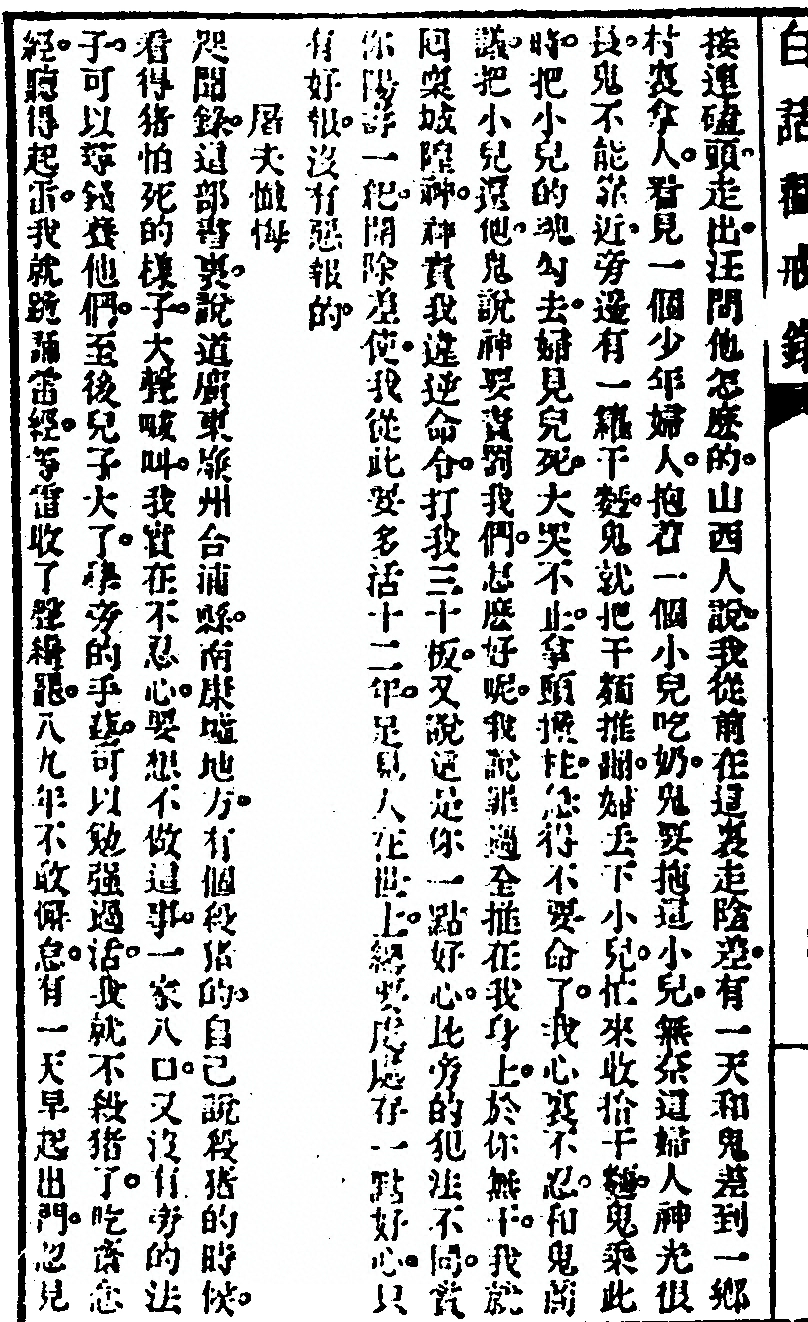 白話勸戒錄
接連磕頭走出。汪問他怎麽的。山西人說。我從前在這裏走陰差。有一天和鬼差到一鄉
村裏拿人。看見一個少年婦人。抱着一個小兒吃奶。鬼要拖這小兒。無奈這婦人神光很
長。鬼不能靠近。旁邊有一籮干麵。鬼就把干麵推翻。婦丟下小兒。忙來收拾干麵。鬼乘此
時。把小兒的魂勾去。婦見兒死。大哭不止。拿頭撞柱。急得不要命了。我心裏不忍。和鬼商
議。把小兒還他。鬼說神要責罰我們。怎麽好呢。我說罪過全推在我身上。於你無干。我就
回裏城隍神。神責我違逆命令。打我三十板。又說這是你一點好心。比旁的犯法不同。賞
你陽壽一紀。開除差使。我從此要多活十二年。足見人在世上。總要處處存一點好心。只
有好報。沒有惡報的。
屠夫懺悔
咫聞錄。這部書裏。說道廣東嶺州台浦縣。南康墟地方。有個殺猪的。自己說殺猪的時候。
看得猪怕死的樣子。大聲喊叫。我實在不忍心。要想不做這事。一家八口。又沒有旁的法
子。可以尋錢養他們。至後兒子大了。學旁的手藝。可以勉强過活。我就不殺猪了。吃齋念
經。聽得起雷。我就跪誦雷經。等雷收了聲纔罷。八九年不敢懈怠。有一天早起出門。忽見